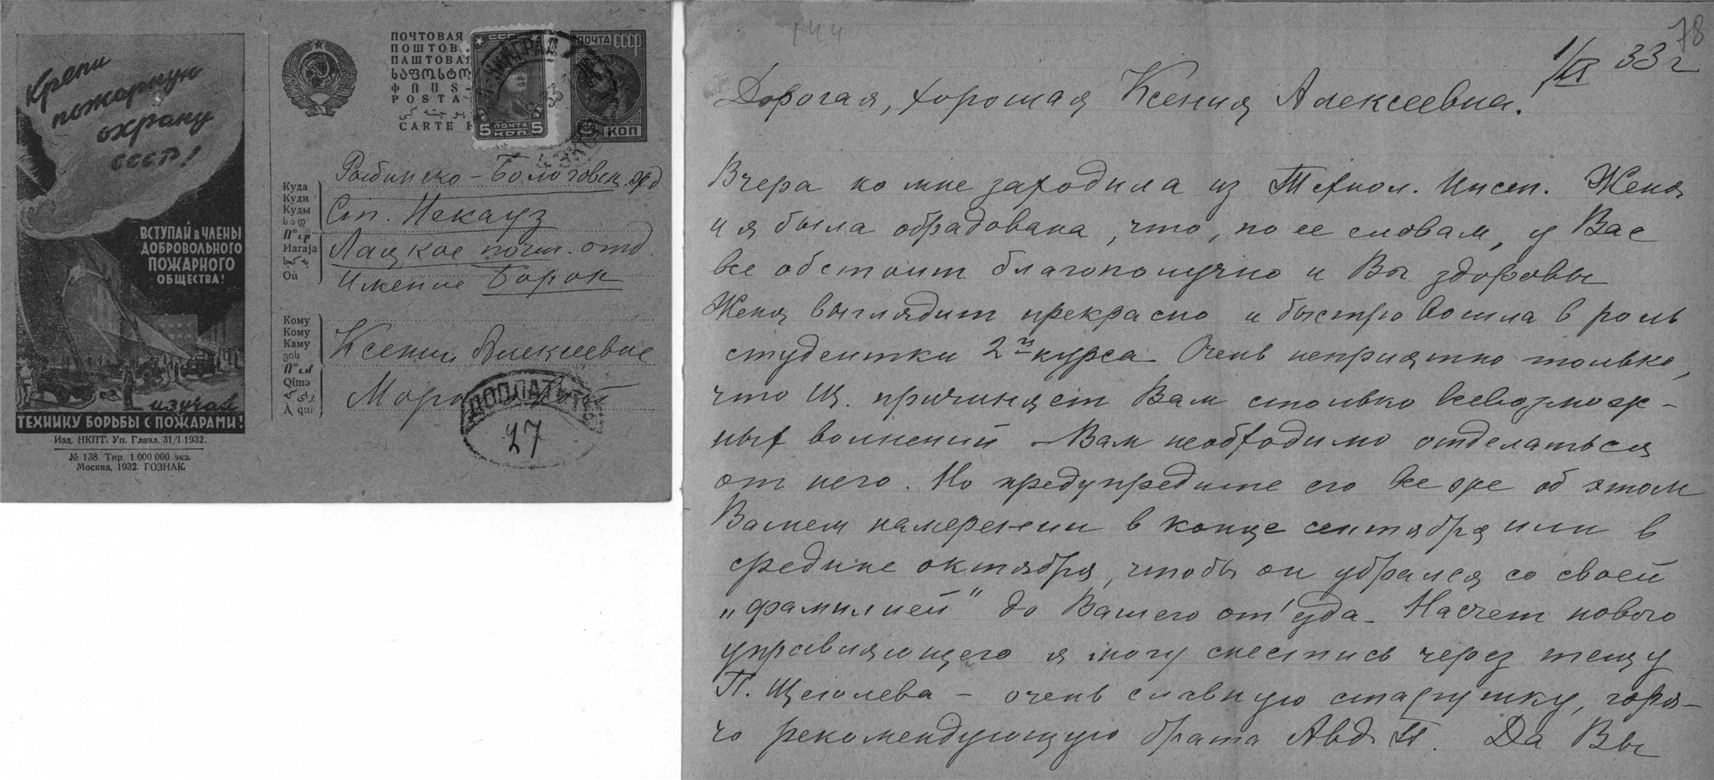 Крепи
пожарную
охрану
СССР!
ВСТУПАЙ в ЧЛЕНЫ
ДОБРОВОЛЬНОГО
ПОЖАРНОГО
ОБЩЕСТВА!
изучай
ТЕХНИКУ БОРЬБЫ С ПОЖАРАМИ!
Изд. НКПТ. Уп. Главл. 31/I 1932.
№ 138. Тир. 1.000 000 экз.
Москва, 1932. ГОЗНАК.
ПОЧТОВАЯ
ПОШТОВ
ПАШТОВАЯ
ՓՈՍ
POSTA
CARTE
ПОЧТА СССР
5 ПОЧТА 5
КОП.
КОП
Куда
Куди
Куды
Haraja
Où
Рыбинско-Бологовск. жд
Ст. Некауз
Лацкое почт. отд.
Имение Борок
Кому
Кому
Каму
Qima
À qui
Ксении Алексеевне
Моро
ДОПЛАТИТЬ
27
78
1/IX 33 г
Дорогая, хорошая Ксения Алексеевна.
Вчера ко мне заходила из Технол. Инст. Женя
и я была обрадована, что, по ее словам, у Вас
все обстоит благополучно и Вы здоровы
Женя выглядит прекрасно и быстро вошла в роль
студентки 2го курса Очень неприятно только,
что Щ. причиняет Вам столько всевозмож-
ных волнений Вам необходимо отделаться
от него. Но предупредите его все же об этом
Вашем намерении в конце сентября или в
средине октября, чтобы он убрался со своей
„фамилией" до Вашего от'езда. Насчет нового
управляющего я могу снестись через тещу
П. Щеголева – очень славную старушку, горя-
чо рекомендующую брата Авд. П. Да Вы